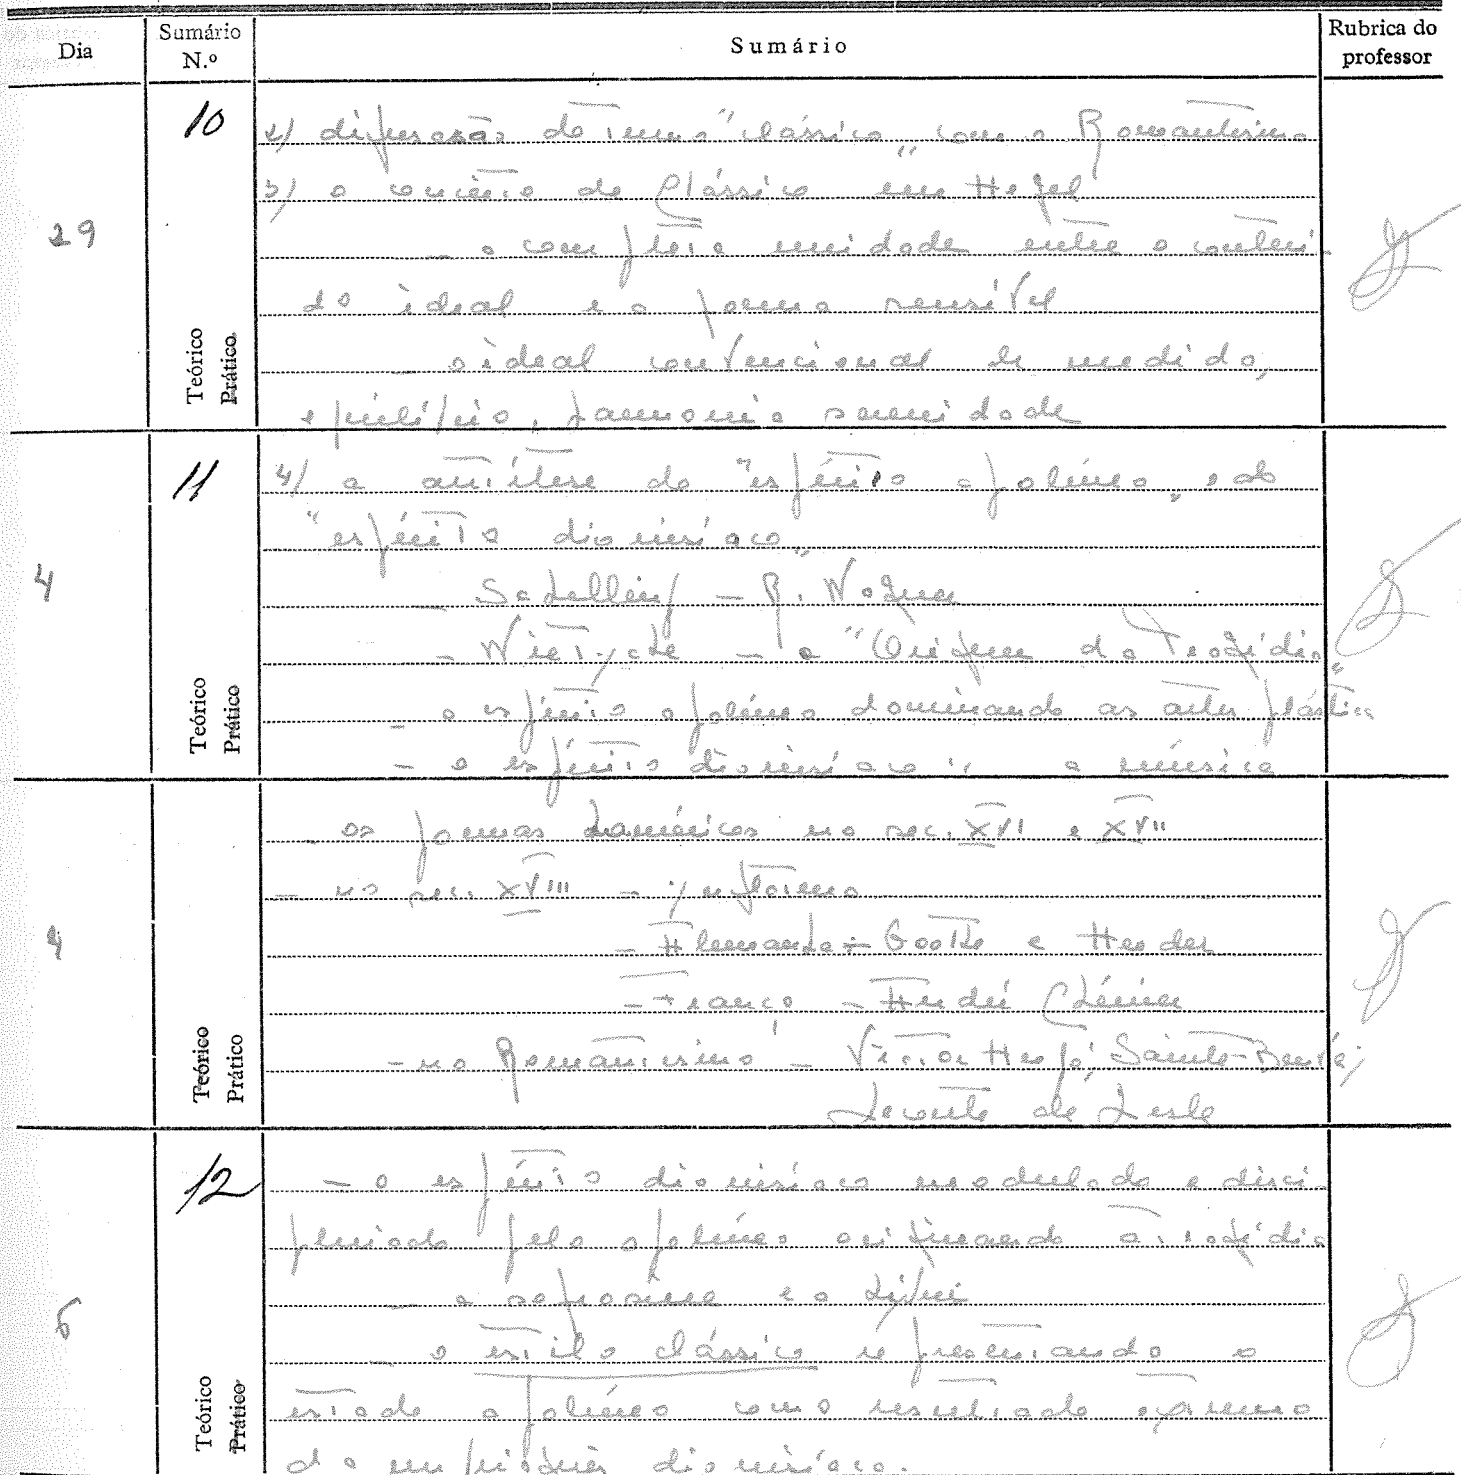 Dia
Sumário N.º
Sumário
Rubrica do professor
29
10
Teórico
Prático
2) difusão do termo "clássico" com o Romantismo
3) o conceito de "Clássico" em Hegel
- a completa unidade entre o conteú-
do ideal e a forma sensível
- o ideal convencional de medida,
equilíbrio, harmonia serenidade
4
11
Teórico
Prático
4) a antítese do "espírito apolíneo" e do
"espírito dionisíaco"
- Schelling - R. Wagner
- Nietzsche - a "Origem da Tragédia"
- o espírito apolíneo dominando as artes plásticas
- o espírito dionisíaco " a música
4
Teórico
Prático
- as formas homéricas no séc. XVI e XVII
- no séc. XVIII - Inglaterra
- Alemanha - Goethe e Herder
- França - André Chénier
- no Romantismo - Victor Hugo, Sainte-Beuve,
Leconte de Lisle
5
12
Teórico
Prático
- o espírito dionisíaco modulado e disci-
plinado pelo apolíneo originando a tragédia
- a sofrosine e a hybris
- o estilo clássico representando o
estado apolíneo como resultado extremo
da embriaguês dionisíaca.